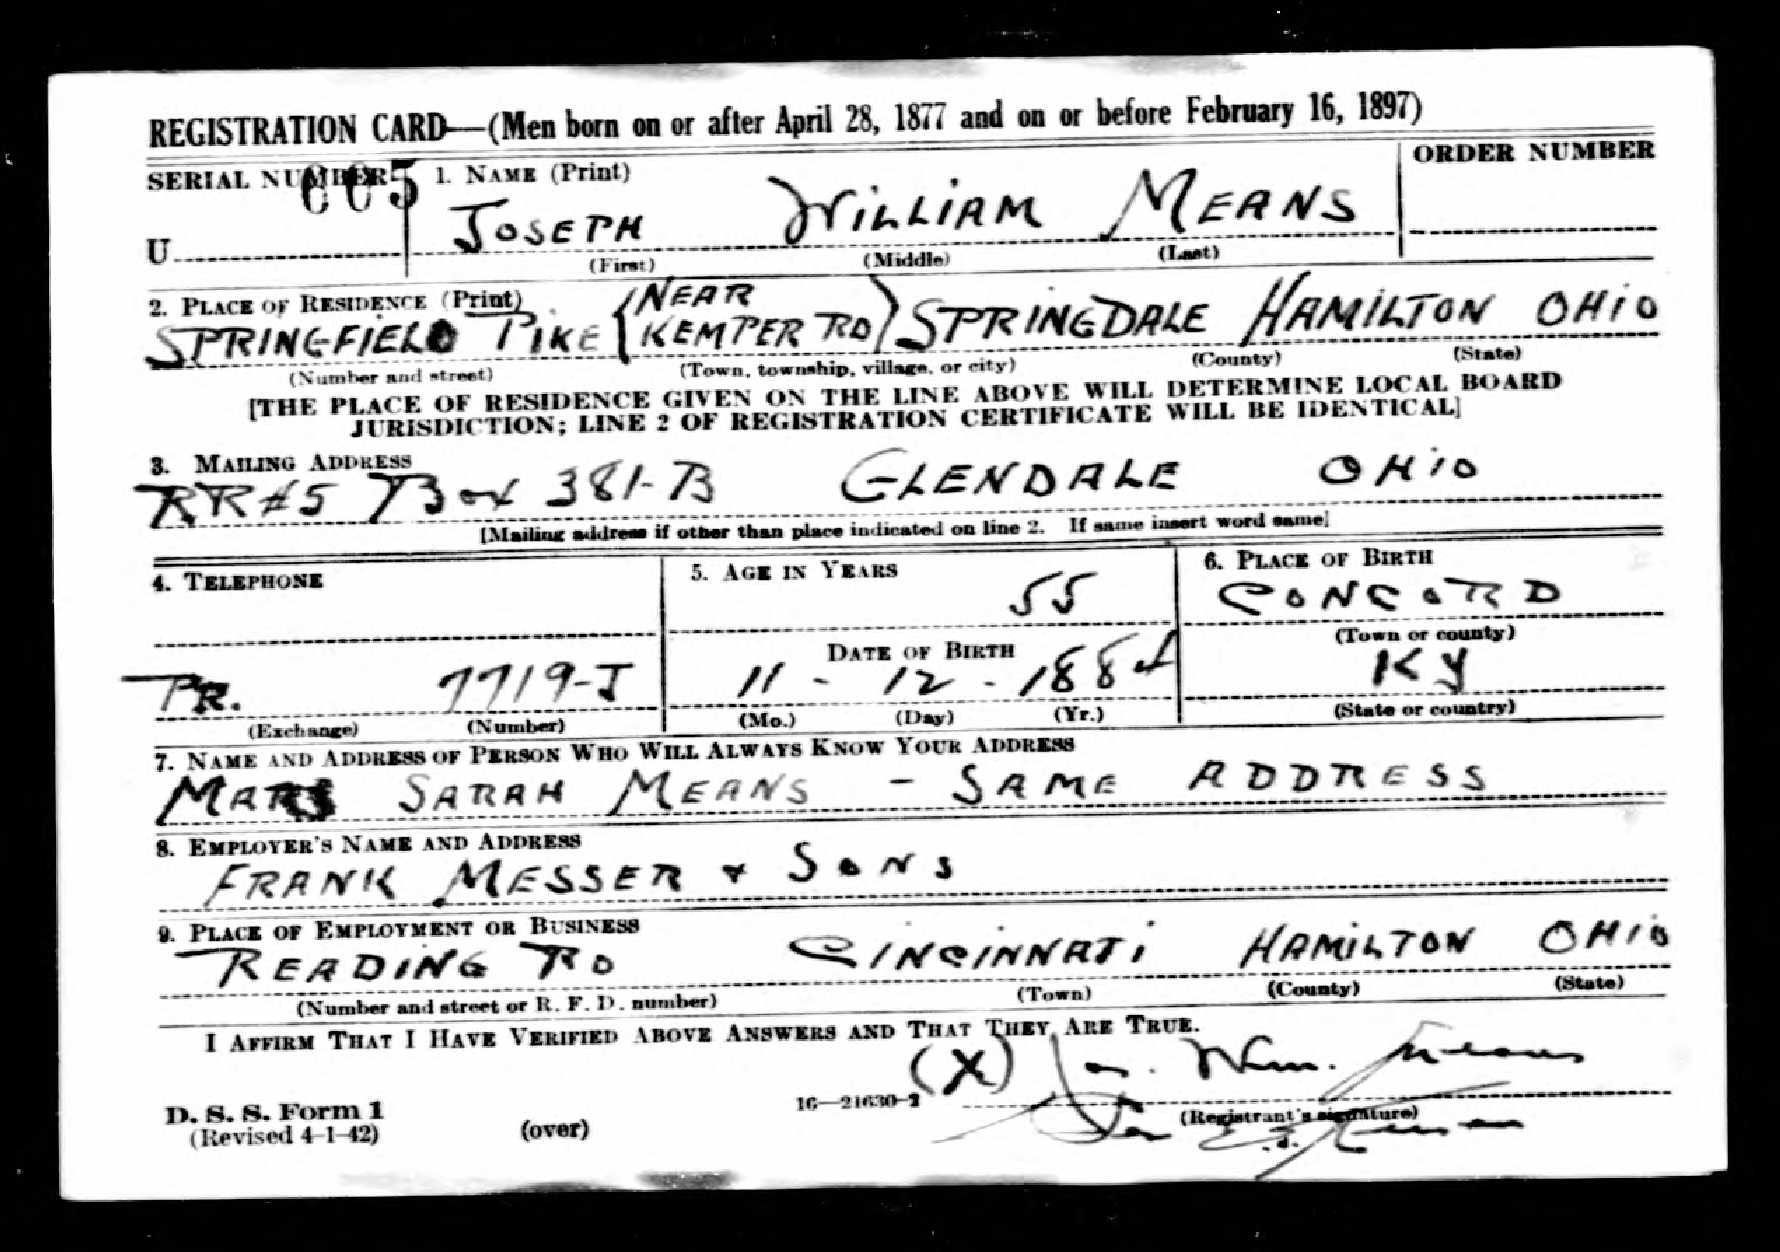 REGISTRATION CARD—(Men born on or after April 28, 1877 and on or before February 16, 1897)
SERIAL NUMBER 1. NAME (Print) ORDER NUMBER
005
U JOSEPH WILLIAM MEANS
(First) (Middle) (Last)
2. PLACE OF RESIDENCE (Print) NEAR
SPRINGFIELD PIKE { KEMPER RD } SPRINGDALE HAMILTON OHIO
(Number and street) (Town, township, village, or city) (County) (State)
[THE PLACE OF RESIDENCE GIVEN ON THE LINE ABOVE WILL DETERMINE LOCAL BOARD
JURISDICTION; LINE 2 OF REGISTRATION CERTIFICATE WILL BE IDENTICAL]
3. MAILING ADDRESS
RR#5 Box 381-B GLENDALE OHIO
[Mailing address if other than place indicated on line 2. If same insert word same]
4. TELEPHONE 5. AGE IN YEARS 6. PLACE OF BIRTH
55 CONCORD
DATE OF BIRTH (Town or county)
PR. 7719-J 11 - 12 - 188 KY
(Exchange) (Number) (Mo.) (Day) (Yr.) (State or country)
7. NAME AND ADDRESS OF PERSON WHO WILL ALWAYS KNOW YOUR ADDRESS
SARAH MEANS - SAME ADDRESS
8. EMPLOYER'S NAME AND ADDRESS
FRANK MESSER & SONS
9. PLACE OF EMPLOYMENT OR BUSINESS
READING RD CINCINNATI HAMILTON OHIO
(Number and street or R. F. D. number) (Town) (County) (State)
I AFFIRM THAT I HAVE VERIFIED ABOVE ANSWERS AND THAT THEY ARE TRUE.
(X) Jos. Wm. Means
D. S. S. Form 1 16—21630-2 (Registrant's signature)
(Revised 4-1-42) (over)